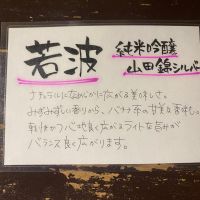 若波
純米吟醸
山田錦シルバー
ナチュラルになめらかに広がる美味しさ。
みずみずしい香りから、バナナ系の甘美な香味。
軽快かつ心地良く広がるライトな旨みが
バランス良く広がります。